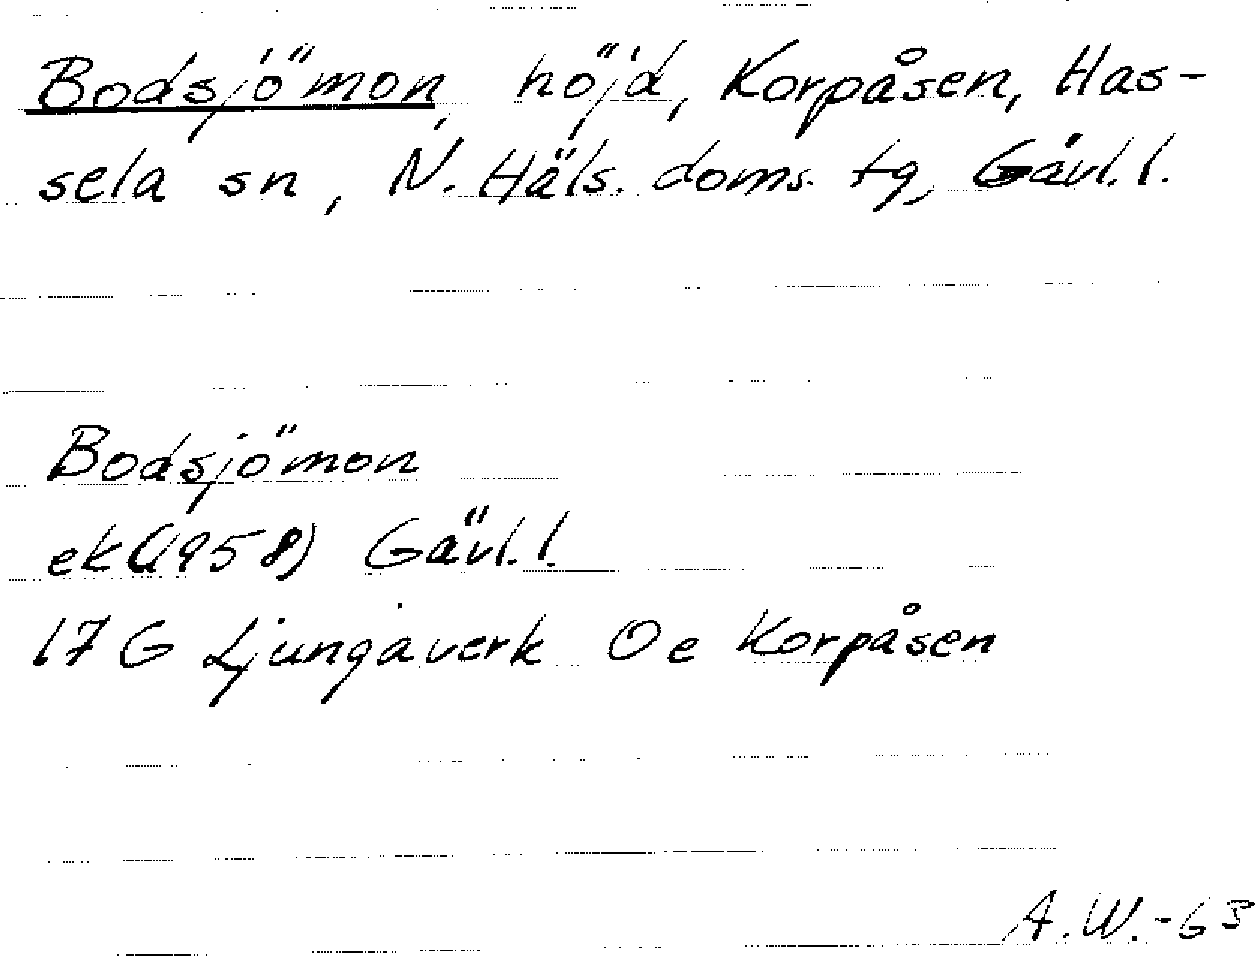 Bodsjömon, höjd, Korpåsen, Has-
sela sn, N. Häls. doms. tg, Gävl. l.
Bodsjömon
ek(1958) Gävl. l.
17 G Ljungaverk Oe Korpåsen
A.W.-63